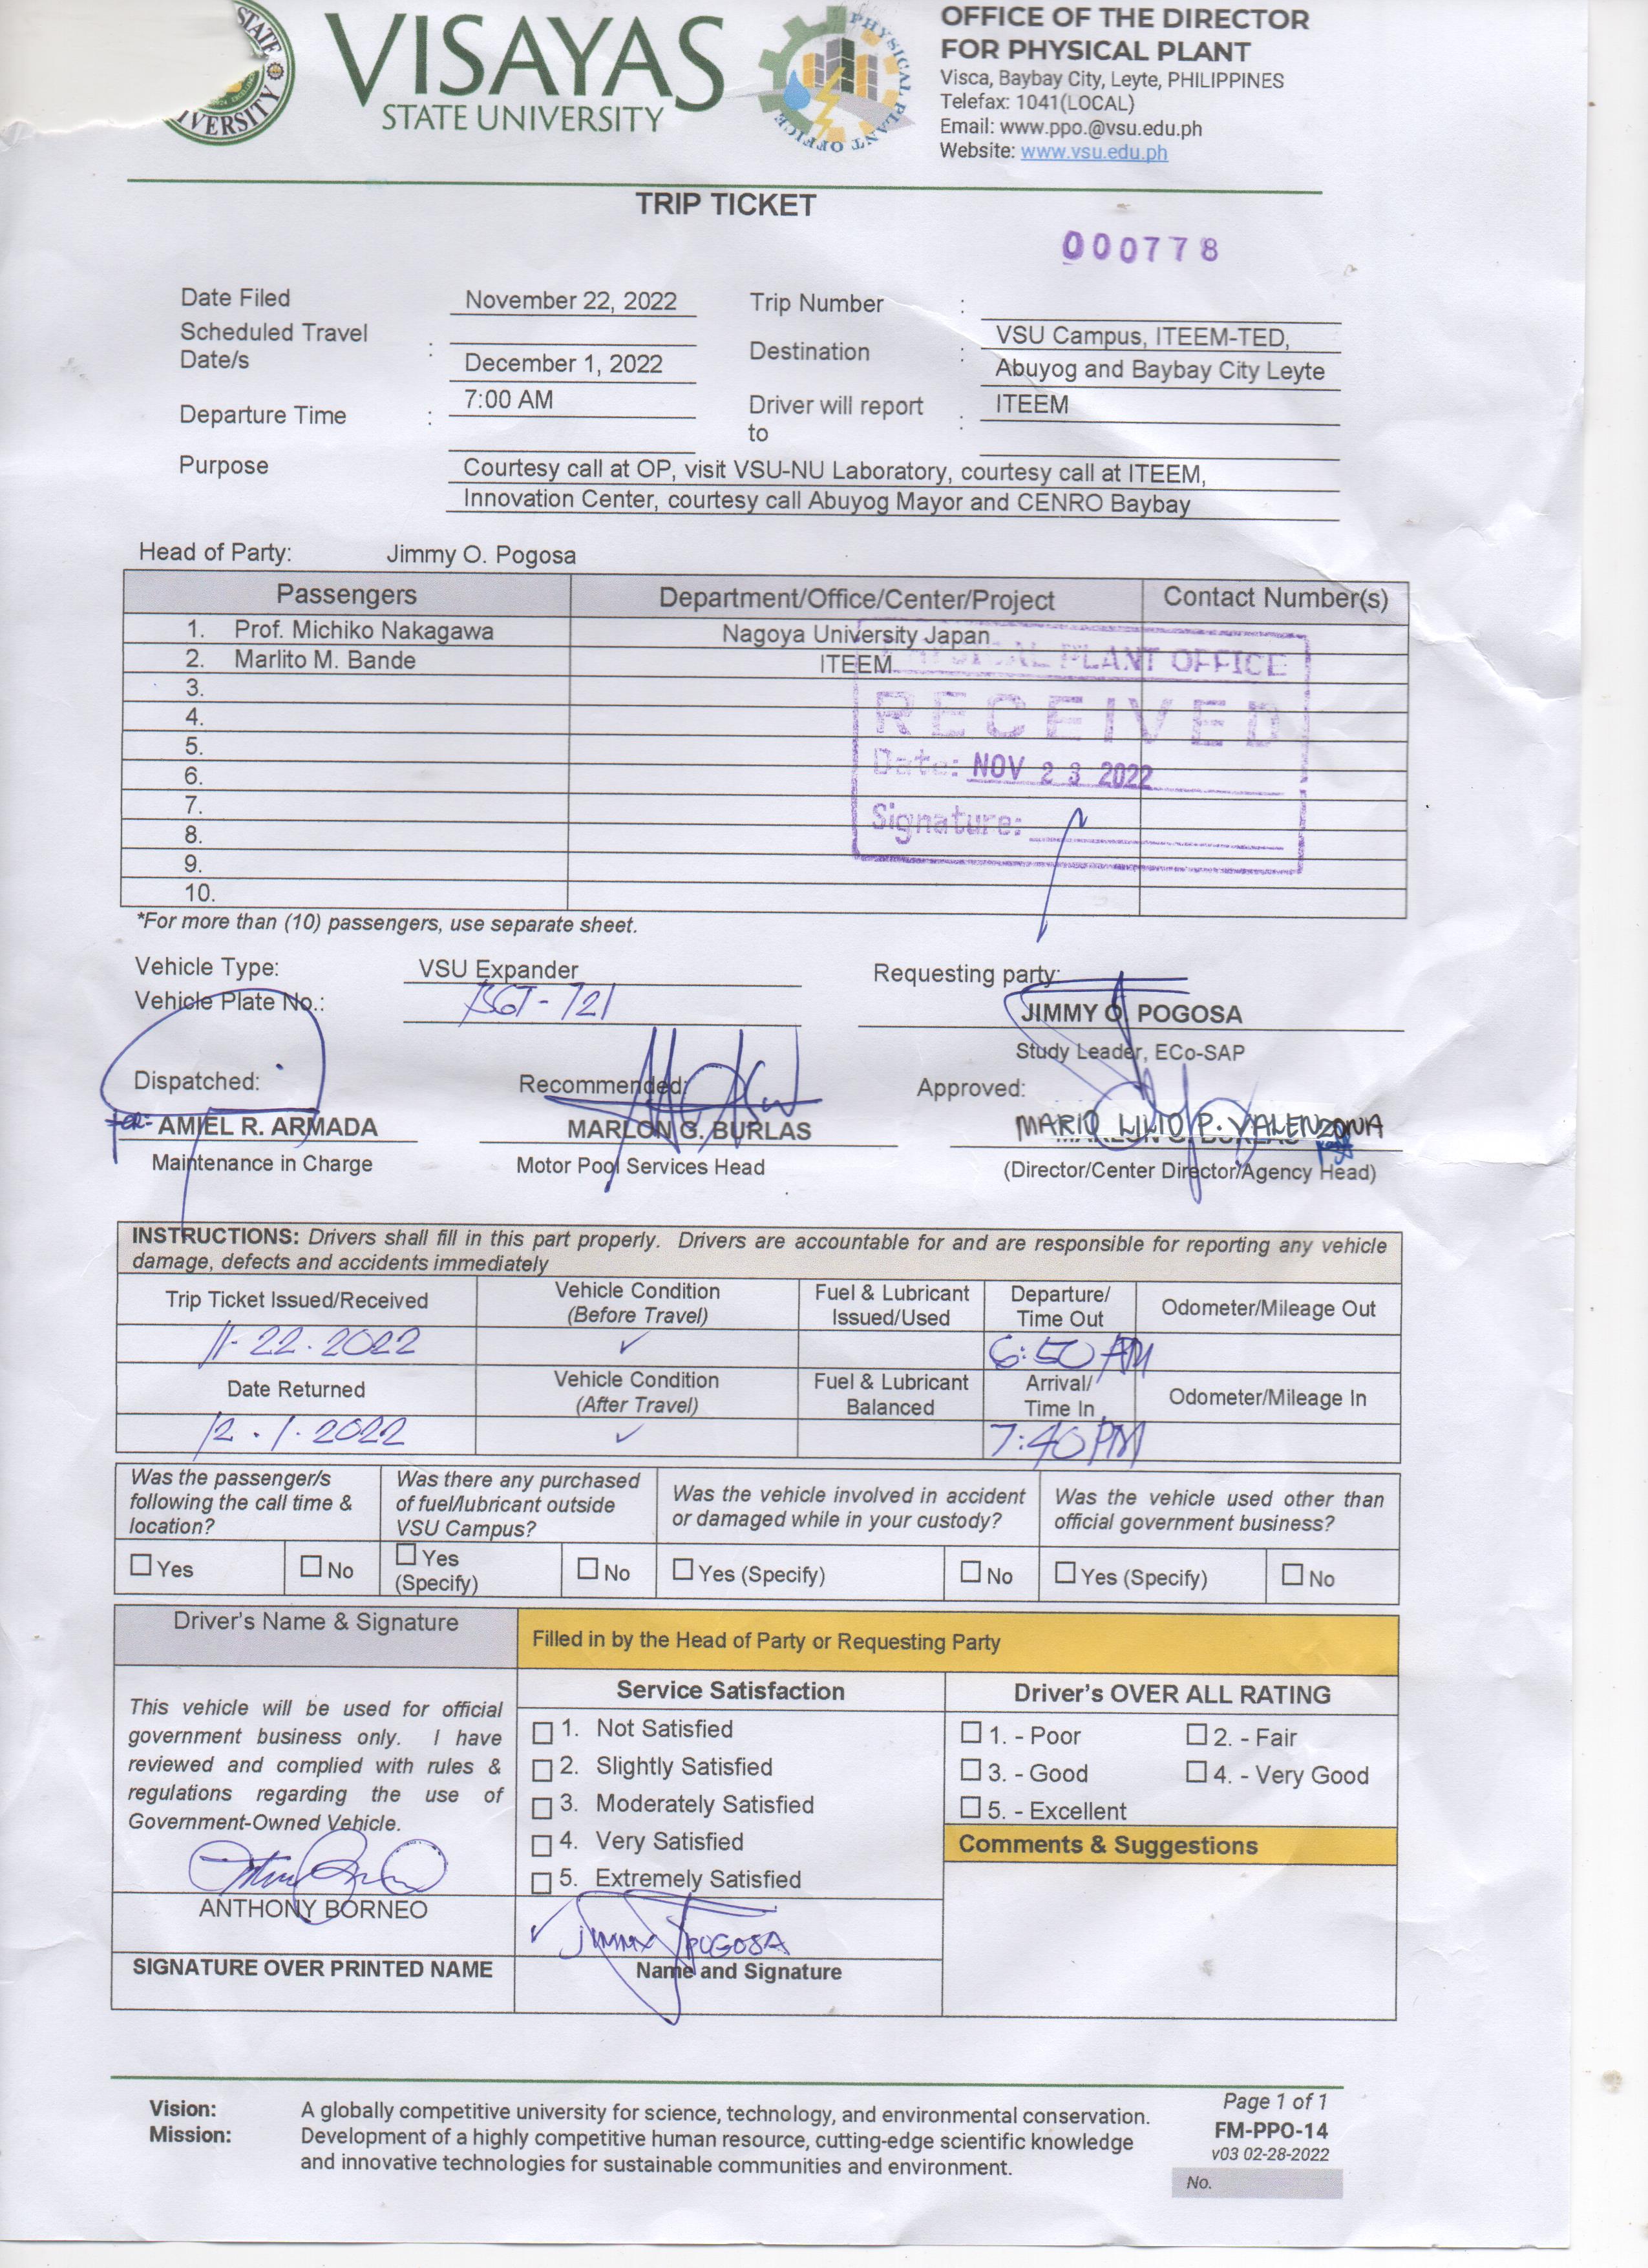 STATE
IVERSITY
VISAYAS
STATE UNIVERSITY
PHYSICAL PLANT OFFICE
OFFICE OF THE DIRECTOR
FOR PHYSICAL PLANT
Visca, Baybay City, Leyte, PHILIPPINES
Telefax: 1041(LOCAL)
Email: www.ppo.@vsu.edu.ph
Website: www.vsu.edu.ph
TRIP TICKET
000778
Date Filed November 22, 2022 Trip Number :
Scheduled Travel Date/s : December 1, 2022 Destination : VSU Campus, ITEEM-TED,
Abuyog and Baybay City Leyte
Departure Time : 7:00 AM Driver will report to : ITEEM
Purpose Courtesy call at OP, visit VSU-NU Laboratory, courtesy call at ITEEM,
Innovation Center, courtesy call Abuyog Mayor and CENRO Baybay
Head of Party: Jimmy O. Pogosa
Passengers Department/Office/Center/Project Contact Number(s)
1. Prof. Michiko Nakagawa Nagoya University Japan
2. Marlito M. Bande ITEEM
3.
4.
5.
6.
7.
8.
9.
10.
PLANT OFFICE
RECEIVED
Date: NOV 23 2022
Signature:
*For more than (10) passengers, use separate sheet.
Vehicle Type: VSU Expander Requesting party:
Vehicle Plate No.:
JIMMY O. POGOSA
Study Leader, ECo-SAP
Dispatched: Recommended: Approved:
for: AMIEL R. ARMADA MARLON G. BURLAS MARIO LILIO P. VALENZONA
Maintenance in Charge Motor Pool Services Head (Director/Center Director/Agency Head)
INSTRUCTIONS: Drivers shall fill in this part properly. Drivers are accountable for and are responsible for reporting any vehicle
damage, defects and accidents immediately
Trip Ticket Issued/Received Vehicle Condition (Before Travel) Fuel & Lubricant Issued/Used Departure/ Time Out Odometer/Mileage Out
11-22.2022 ✓ 6:50 AM
Date Returned Vehicle Condition (After Travel) Fuel & Lubricant Balanced Arrival/ Time In Odometer/Mileage In
12.1.2022 ✓ 7:40 PM
Was the passenger/s following the call time & location? Was there any purchased of fuel/lubricant outside VSU Campus? Was the vehicle involved in accident or damaged while in your custody? Was the vehicle used other than official government business?
☐ Yes ☐ No ☐ Yes (Specify) ☐ No ☐ Yes (Specify) ☐ No ☐ Yes (Specify) ☐ No
Driver's Name & Signature Filled in by the Head of Party or Requesting Party
Service Satisfaction Driver's OVER ALL RATING
This vehicle will be used for official
government business only. I have
reviewed and complied with rules &
regulations regarding the use of
Government-Owned Vehicle.
☐ 1. Not Satisfied
☐ 2. Slightly Satisfied
☐ 3. Moderately Satisfied
☐ 4. Very Satisfied
☐ 5. Extremely Satisfied
☐ 1. - Poor ☐ 2. - Fair
☐ 3. - Good ☐ 4. - Very Good
☐ 5. - Excellent
Comments & Suggestions
ANTHONY BORNEO
✓ JIMMY POGOSA
SIGNATURE OVER PRINTED NAME Name and Signature
Vision: A globally competitive university for science, technology, and environmental conservation.
Mission: Development of a highly competitive human resource, cutting-edge scientific knowledge
and innovative technologies for sustainable communities and environment.
Page 1 of 1
FM-PPO-14
v03 02-28-2022
No.